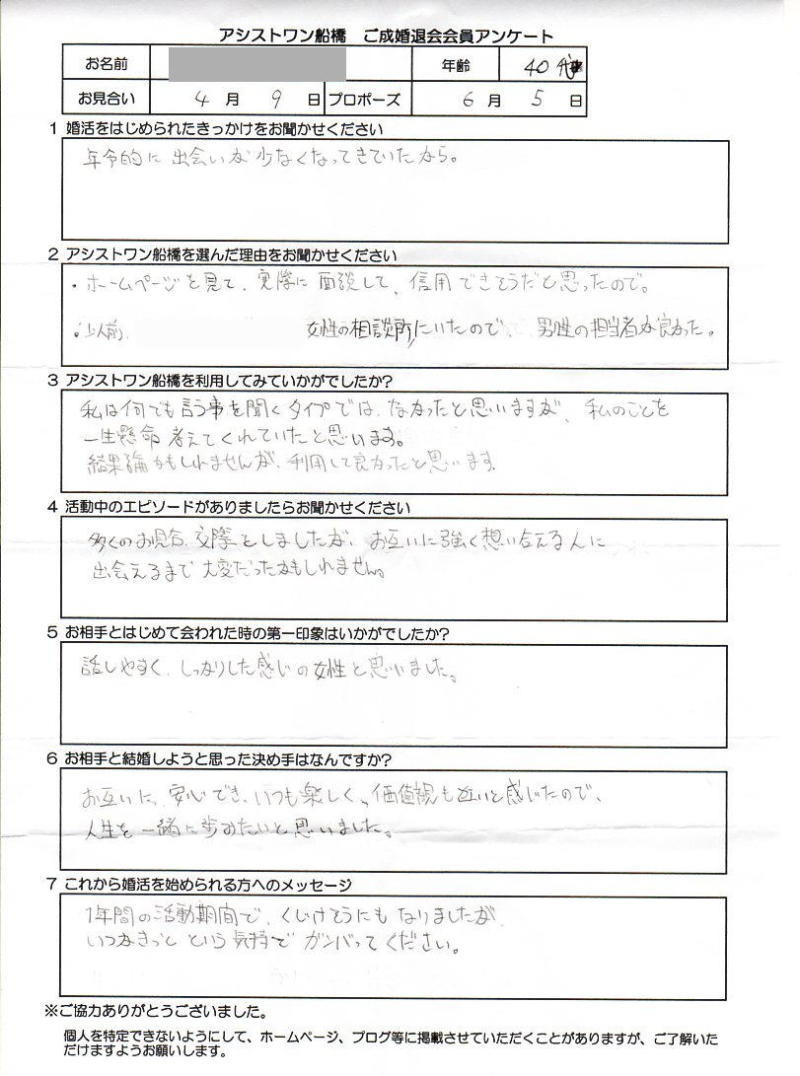 アシストワン船橋　ご成婚退会会員アンケート
お名前 年齢 40代
お見合い 4月 9日 プロポーズ 6月 5日
1 婚活をはじめられたきっかけをお聞かせください
年令的に出会いが少なくなってきていたから。
2 アシストワン船橋を選んだ理由をお聞かせください
・ホームページを見て、実際に面談して、信用できそうだと思ったので。
・以前 女性の相談所にいたので、男性の担当者が良かった。
3 アシストワン船橋を利用してみていかがでしたか?
私は何でも言う事を聞くタイプでは、なかったと思いますが、私のことを
一生懸命考えてくれていたと思います。
結果論かもしれませんが、利用して良かったと思います
4 活動中のエピソードがありましたらお聞かせください
多くのお見合、交際をしましたが、お互いに強く想い合える人に
出会えるまで大変だったかもしれません。
5 お相手とはじめて会われた時の第一印象はいかがでしたか?
話しやすく、しっかりした感じの女性と思いました。
6 お相手と結婚しようと思った決め手はなんですか?
お互いに、安心でき、いつも楽しく、価値観も近いと感じたので、
人生を一緒に歩みたいと思いました。
7 これから婚活を始められる方へのメッセージ
1年間の活動期間で、くじけそうにもなりましたが
いつかきっとという気持でガンバってください。
※ご協力ありがとうございました。
個人を特定できないようにして、ホームページ、ブログ等に掲載させていただくことがありますが、ご了解いた
だけますようお願いします。